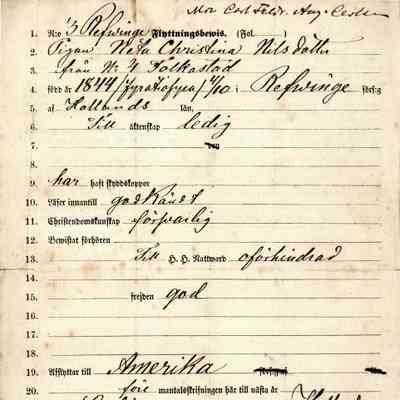 Mor Carl Feldt. Aug.
1. N:o 3 Refwinge Flyttningsbewis. (Fol. )
2. Pigan Neta Christina Nilsdotter
3. ifrån N:o 4 Folkastad
4. född år 1844 /fyratiofyra/ 4/10 : Refwinge förs:g
5. af Hallands län,
6. Till äktenskap ledig
7.
8.
9. har haft skyddskoppor
10. Läser innantill godkändt
11. Christendomskunskap försvarlig
12. Bewistat förhören
13. Till H. H. Nattward oförhindrad
14.
15. frejden god
16.
17.
18.
19. Afflyttar till Amerika
20. före mantalsskrifningen här till nästa år